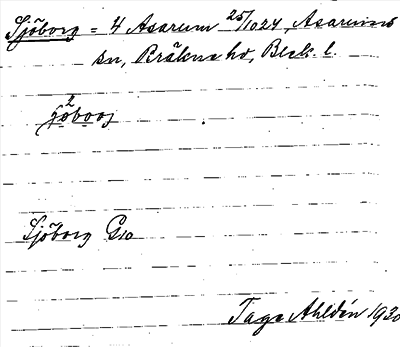 Sjöborg = 4 Asarum 25/1024, Asarums
sn, Bräkne hd, Blek. l.
Sjöborg G10
Tage Ahldén 1930